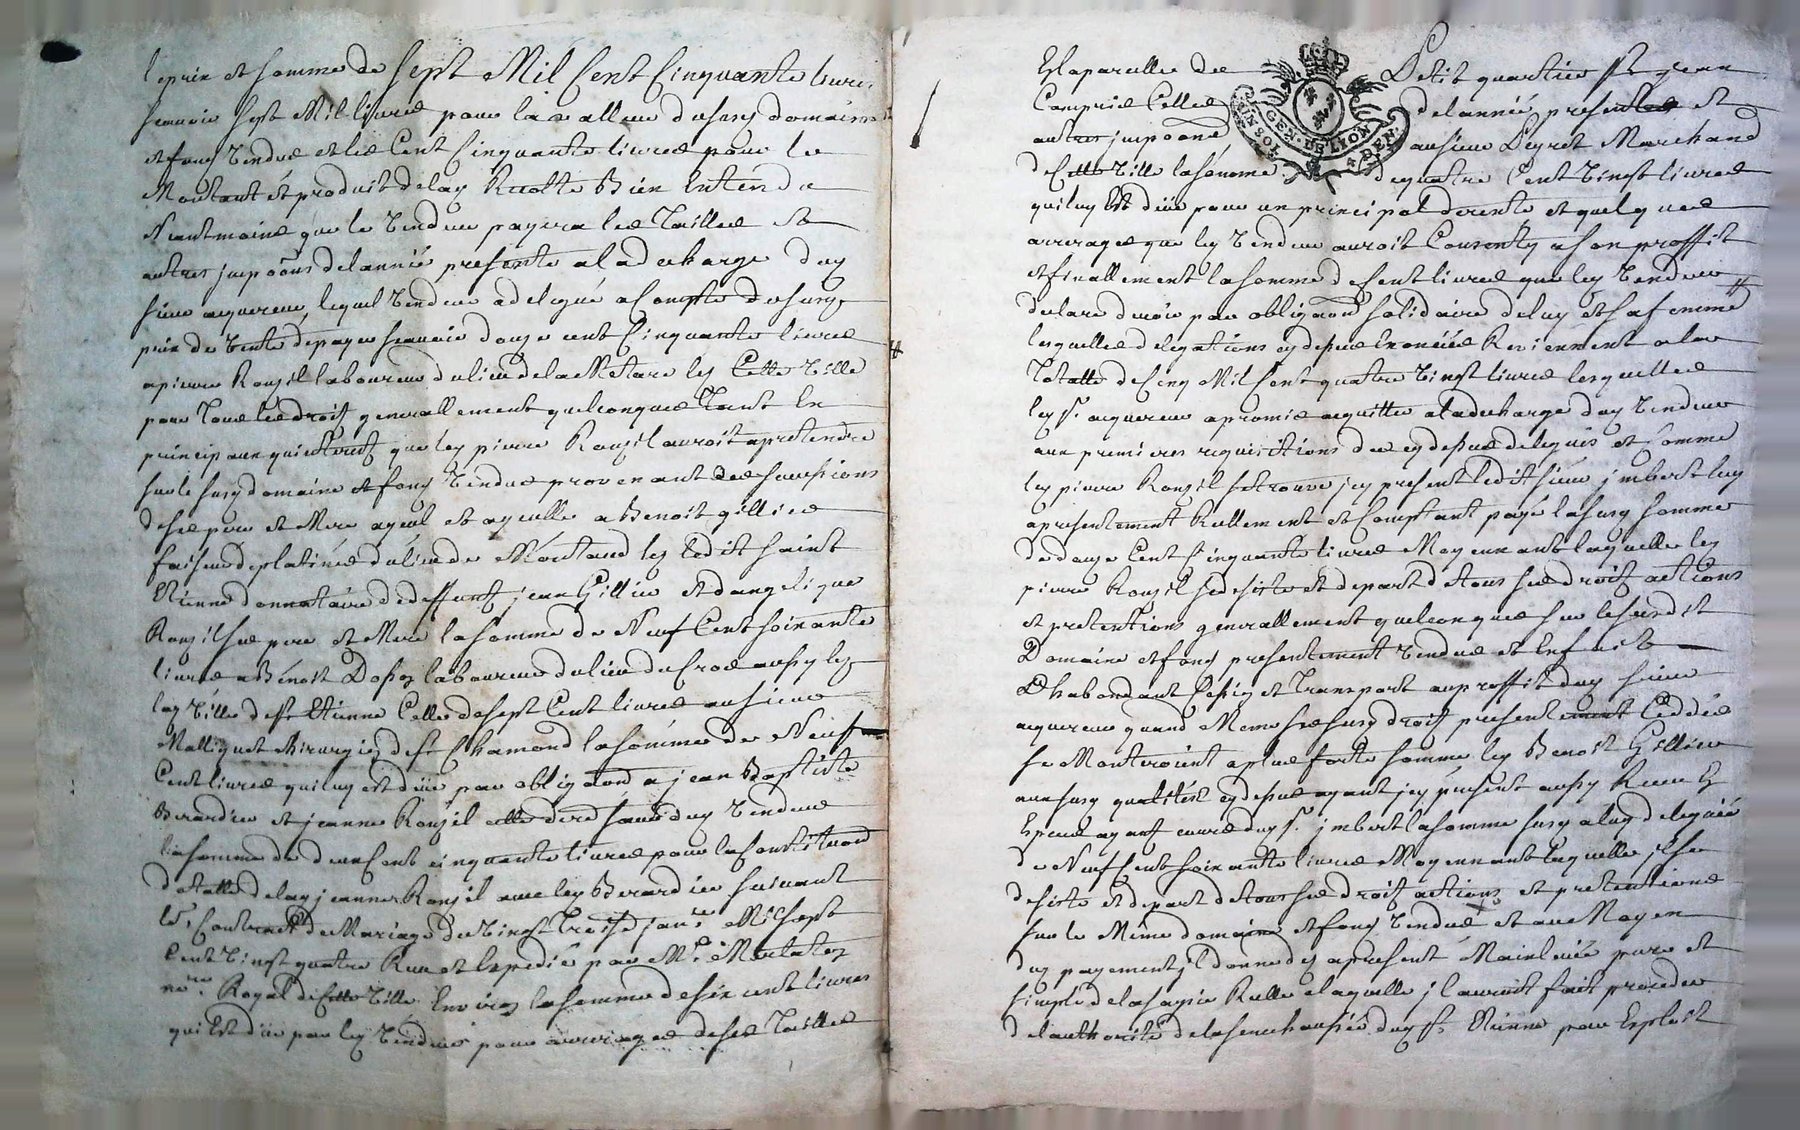 le prix et somme de Sept Mil Cent Cinquante livres
scavoir sept Mil livres pour la valleur du susy domaine
et fong vendus et les Cent Cinquante livres pour le
Montant et produit de lay Recolte Bien Entendu
Neantmoins que le vendeur payera les Tailles et
autres jmpoōns de lannée presente a la decharge duy
sieur acquereur, lequel vendeur a delegué a Compte du susy
prix de vente de payer scavoir douze cent Cinquante livres
a pierre Ronzil laboureur du lieu de la Metare les Cette ville
pour Tous les droits generallement quelconques Tant En
principaux quinterest que ley pierre Ronzil auroit a pretendre
sur le susy domaine et fong vendus provenant des successions
de ses pere et Mere ayeul et ayeulle a Benoit gillier
faiseur de platines du lieu de Montaud les ledit saint
Etienne donnataire de deffunt jean Gillier et dangelique
Ronzil ses pere et Mere la somme de Neuf Cent soixante
livres a Benoit laboureur du lieu du Cros aussy les
lay ville de St Etienne Celle de sept Cent livres au sieur
Malliquet Chirurgien de St Chamond la somme de Neuf
Cent livres qui luy est düe par obligaōn a jean Baptiste
Berardier et jeanne Ronzil duy vendeur
la somme de deux Cent cinquante livres pour la Constituōn
dotalle de lay jeanne Ronzil avec ley Berardier suivant
le Contract de Mariage du vingt Treise janer Mil sept
Cent vingt quatre Reçu et Expedié par Me
nre Royal de cette ville Environ la somme de six cent livres
qui Est düe par ley vendeur pour arrerages de ses Tailles
Es la parcelle de Petit quartier St jean
Compris Celles de lannée presente et
autres jmpoōns au sieur Peyret Marchand
de Cette ville la somme de quatre Cent vingt livres
qui luy Est düe pour un principal de rente et quelques
arrerages que ley vendeur auroit Consenty a son proffit
et finallement la somme de Cent livres que ley vendeur
declare devoir par obligaōn solidaire de luy et sa femme
lesquelles delegations cy dessus Enoncées Reviennent a la
Totalle de Cinq Mil Cent quatre vingt livres lesquelles
ley sr. acquereur a promis acquitter a la decharge duy vendeur
aux premieres requisitions des cy dessus delegués et Comme
ley pierre Ronzil se trouve jcy present ledit sieur jmbert luy
a presentement Réellement et Comptant payé la susy somme
de douze Cent Cinquante livres Moyennant laquelle ley
pierre Ronzil se desiste et depart de tous ses droits actions
et pretentions generallement quelconques sur le susdit
Domaine et fong presentement vendus et En fait
Dhabondant Cession et Transport au proffit duy sieur
acquereur quand Meme ses susy droits presentement Ceddés
se Monteroient a plus forte somme ley Benoit Gillier
aux susy qualités cy dessus ayant jcy présent aussy Receu
Especes ayant cours duy sr. jmbert la somme susy a luy deleguée
de Neuf Cent soixante livres Moyennant laquelle jl se
desiste et depart de tous ses droits actions et pretentions
sur le Même domaine et fong vendus et au Moyen
duy payement jl donne des a present Mainlevée pure et
simple de la saisie Réelle a laquelle jl auroit fait proceder
de lauthorité de la senechaussée duy St. Etienne par Exploit
GEN. DE LION